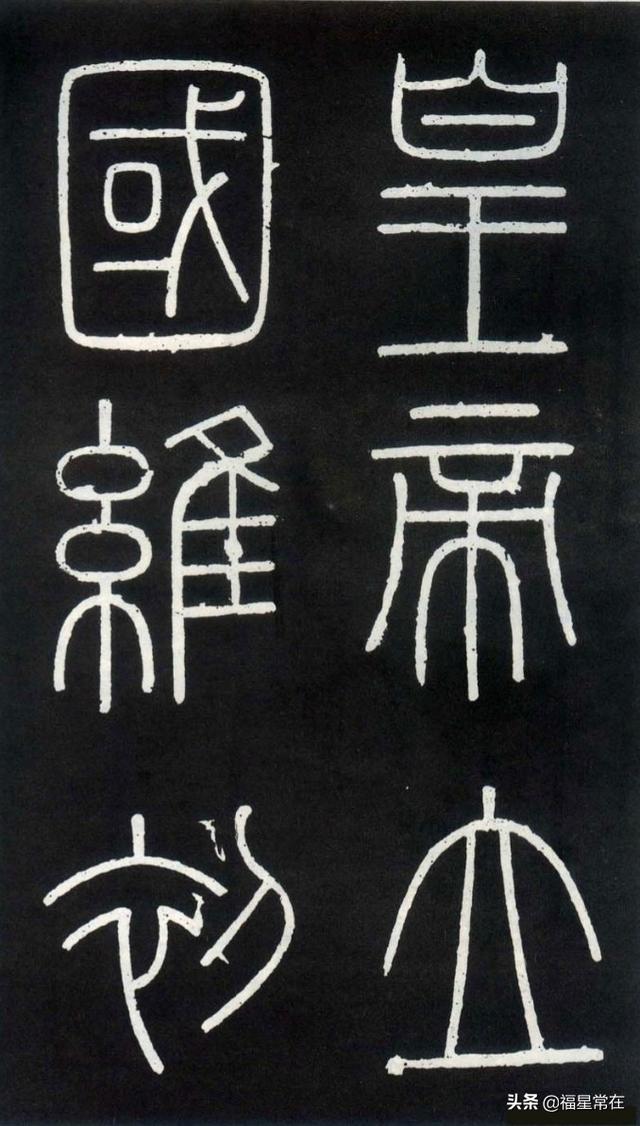 皇帝立
國維初
头条 @福星常在